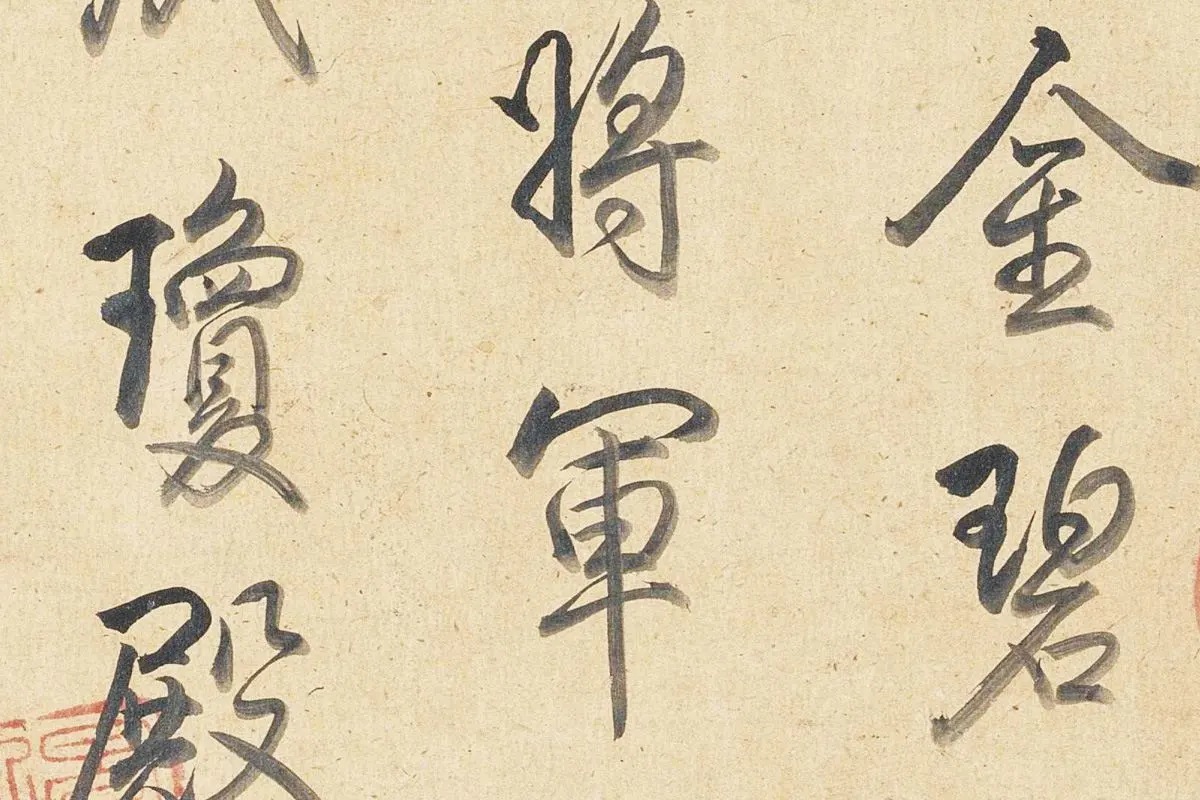 金碧
將軍
瓊殿